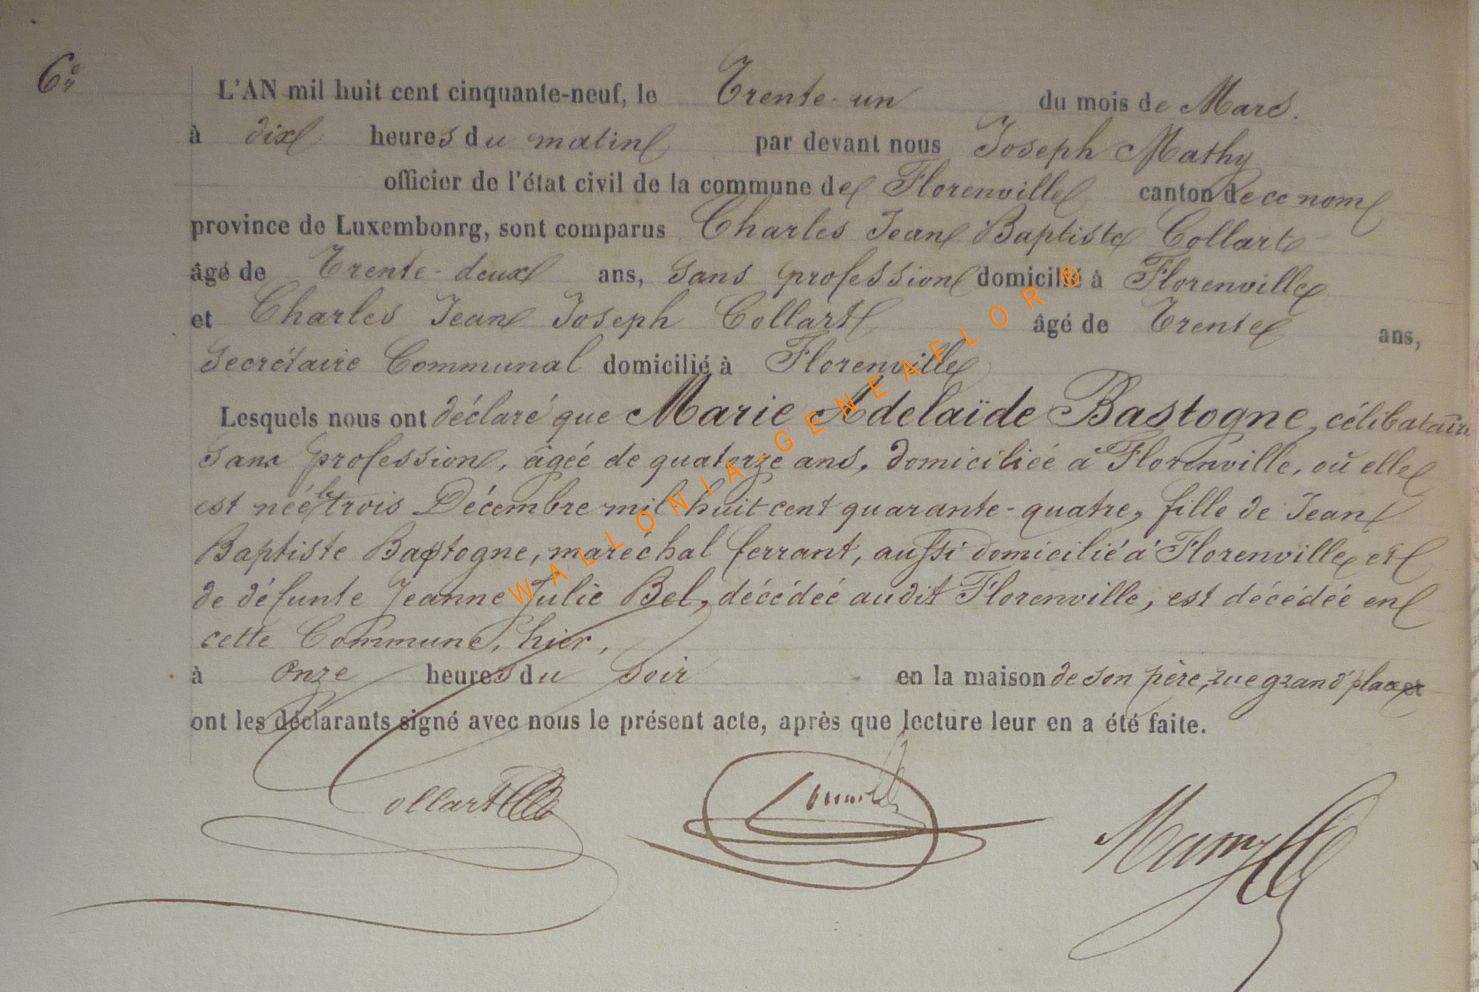 6e
L'AN mil huit cent cinquante-neuf, le Trente-un du mois de Mars.
à dix heures du matin par devant nous Joseph Mathy
officier de l'état civil de la commune de Florenville canton de ce nom
province de Luxembonrg, sont comparus Charles Jean Baptiste Collart
âgé de Trente-deux ans, sans profession domicilié à Florenville
et Charles Jean Joseph Collart âgé de Trente ans,
Secrétaire Communal domicilié à Florenville
Lesquels nous ont déclaré que Marie Adelaïde Bastogne, célibataire
sans profession, âgée de quatorze ans, domiciliée à Florenville, où elle
est née le trois Décembre mil huit cent quarante-quatre, fille de Jean
Baptiste Bastogne, maréchal ferrant, aussi domicilié à Florenville et
de défunte Jeanne Julie Bel, décédée audit Florenville, est décédée en
cette Commune, hier,
à onze heures du soir en la maison de son père, rue grand'place et
ont les déclarants signé avec nous le présent acte, après que lecture leur en a été faite.
Collart
WALLONIA-GENEAFLOR®